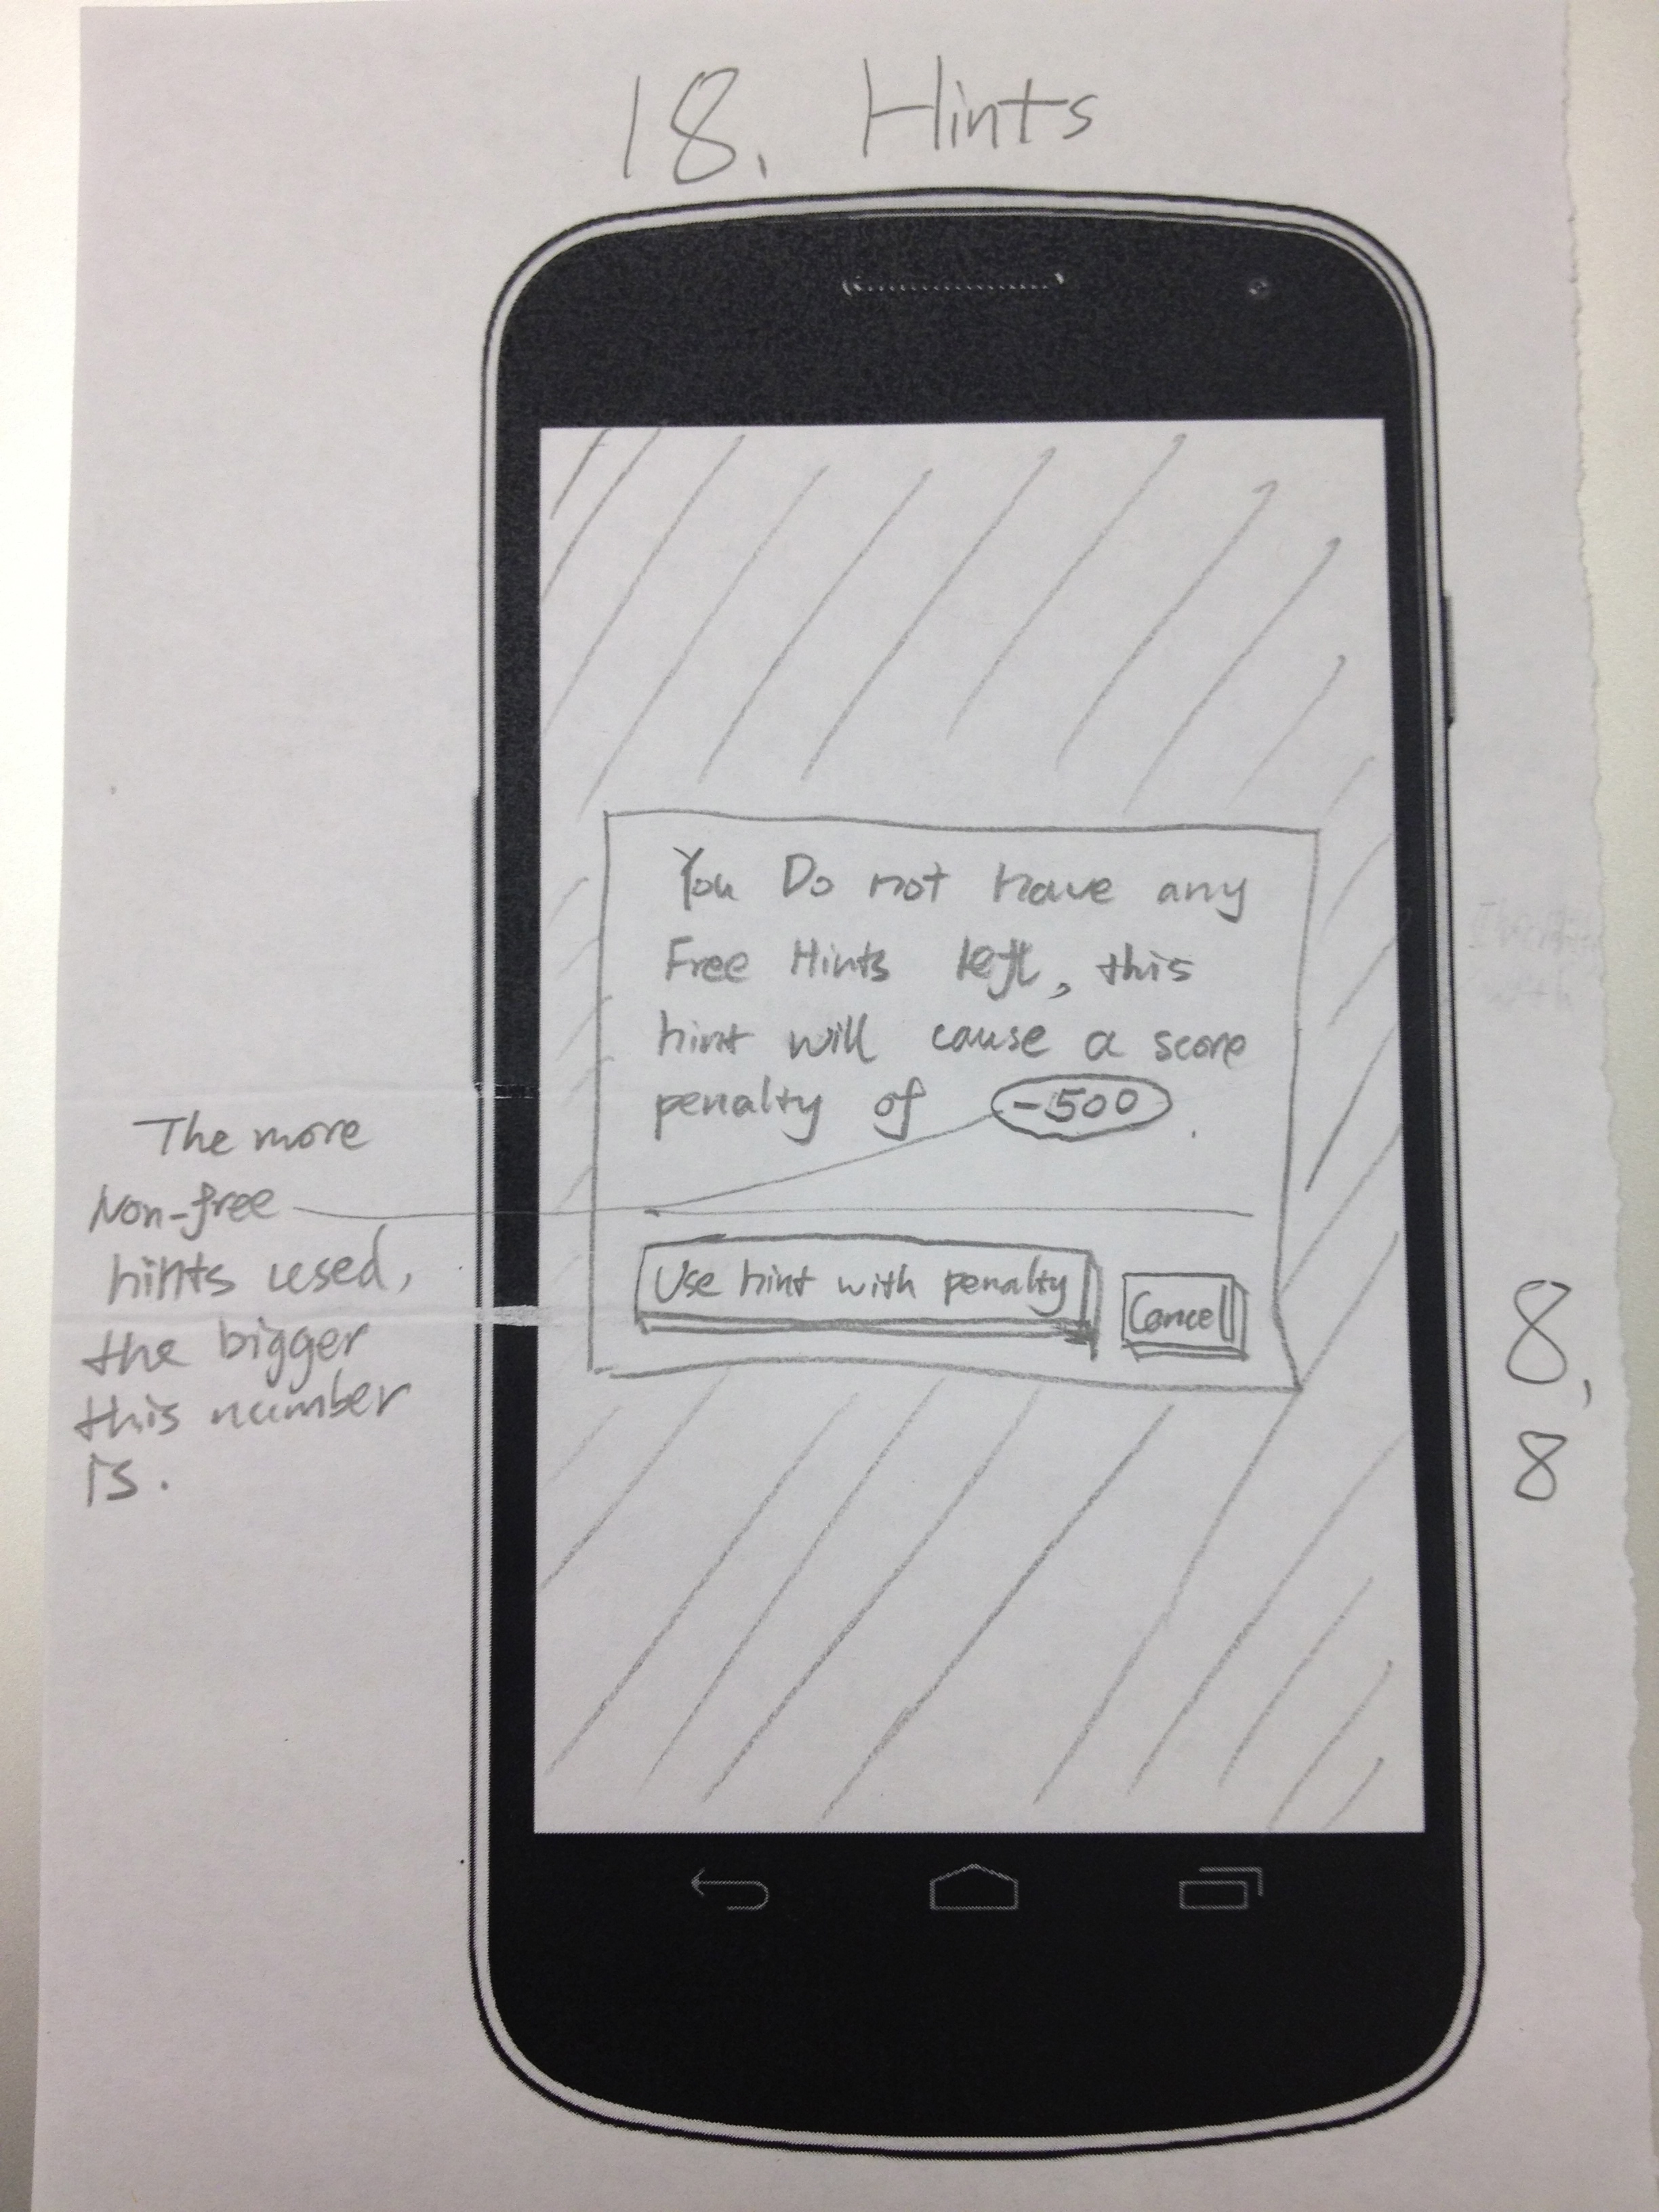 18. Hints
You Do not have any
Free Hints left, this
hint will cause a score
penalty of -500.
Use hint with penalty
Cancel
The more
Non-free
hints used,
the bigger
this number
is.
8,
8